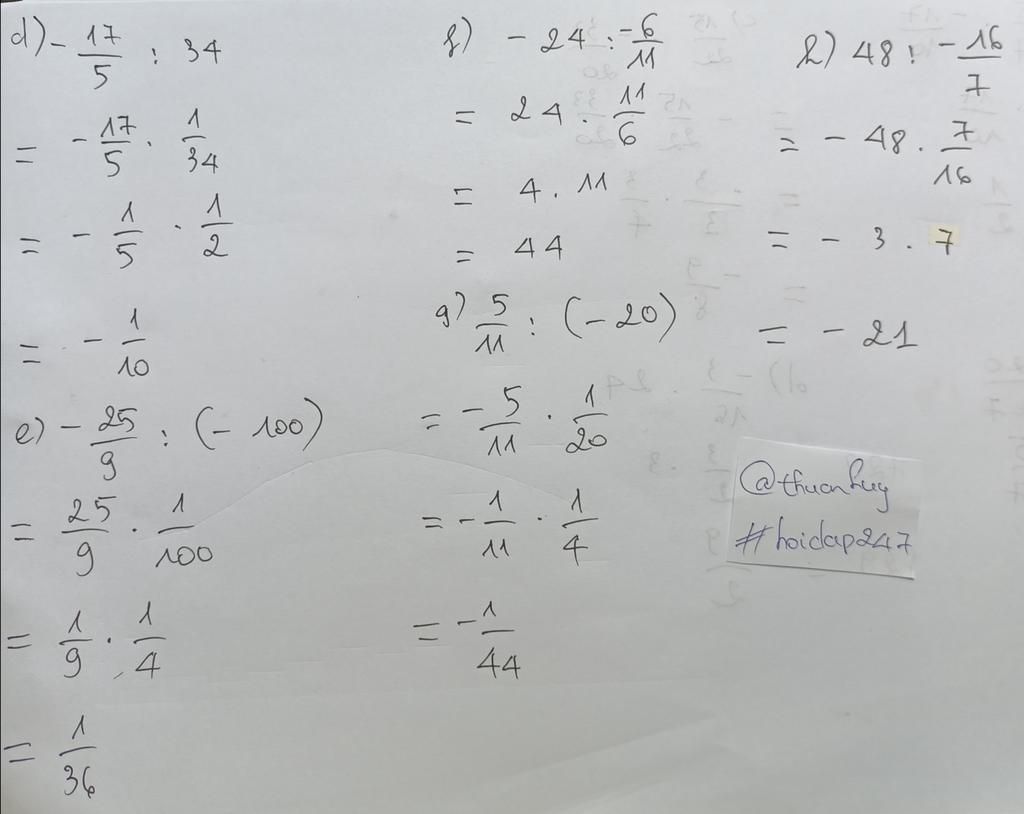 d) - 17/5 : 34
= - 17/5 . 1/34
= - 1/5 . 1/2
= - 1/10
e) - 25/9 : (- 100)
= 25/9 . 1/100
= 1/9 . 1/4
= 1/36
f) - 24 : -6/11
= 24 . 11/6
= 4 . 11
= 44
g) 5/11 : (- 20)
= - 5/11 . 1/20
= - 1/11 . 1/4
= - 1/44
h) 48 : - 16/7
= - 48 . 7/16
= - 3 . 7
= - 21
@thuanhuy
#hoidap247